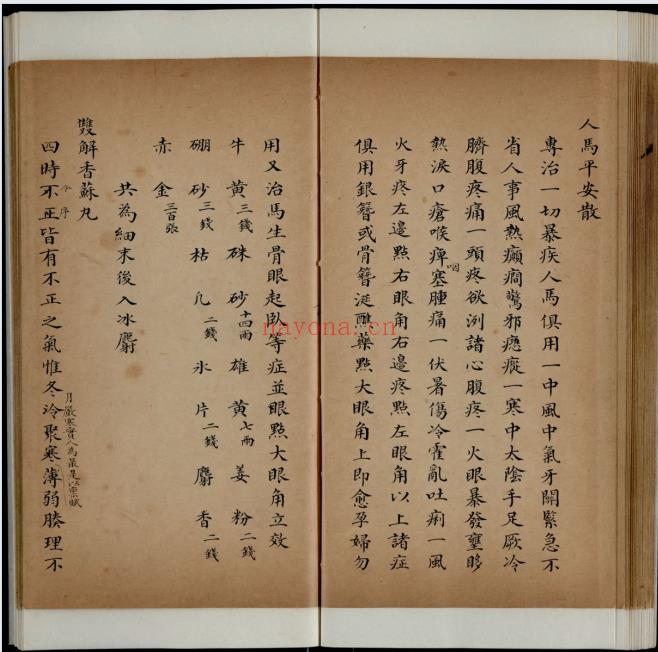 人馬平安散
專治一切暴疾人馬俱用一中風中氣牙關緊急不
省人事風熱癲癇驚邪瘛瘲一寒中太陰手足厥冷
臍腹疼痛一頭疼欲洌諸心腹疼一火眼暴發壅眵
熱淚口瘡喉痺塞腫痛一伏暑傷冷霍亂吐痢一風
咽
火牙疼左邊點右眼角右邊疼點左眼角以上諸症
俱用銀簪或骨簪涎蘸藥點大眼角上即愈孕婦勿
用又治馬生骨眼起臥等症並眼點大眼角立效
牛黃三錢硃砂十四兩雄黃七兩姜粉二錢
硼砂三錢枯凡二錢氷片二錢麝香二錢
赤金三百張
共為細末後入冰麝
雙解香蘇丸
四時不正皆有不正之氣惟冬冷聚寒薄弱腠理不
令序
月嚴寒實人為最是以禀賦
nayona.cn